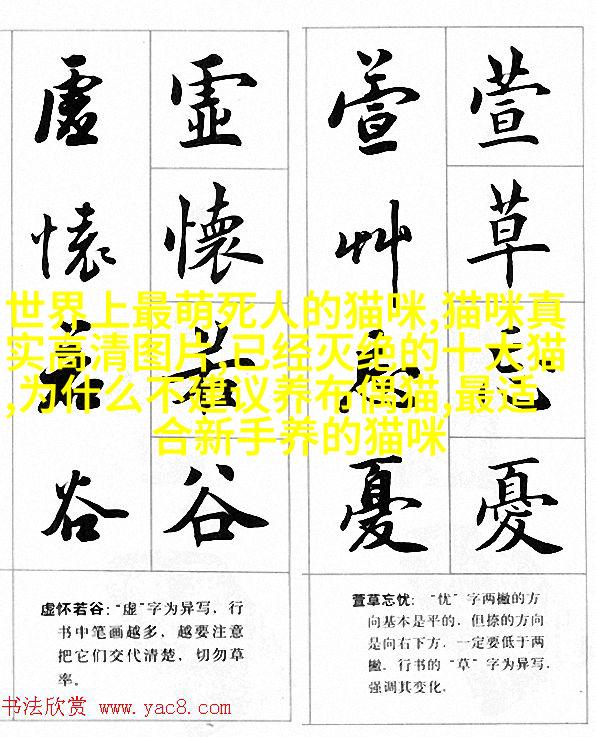 虛 虛
懷 懷
若 若
谷 谷
萱 萱
艸 草
忘 忘
憂 憂
世界上最萌死人的猫咪,猫咪真
实高清图片,已经灭绝的十大猫
,为什么不建议养布偶猫,最适
合新手养的猫咪
虚怀若谷:“虚”字为异写，行
书中笔画越多，越要注意
把它们交代清楚，切勿草
率。
萱草忘忧：“忧”字两撇的方
向基本是平的，但捺的方向
是向右下方，一定要低于两
撇。行书的“草”字为异写，
强调其变化。
书法欣赏 www.yac8.com